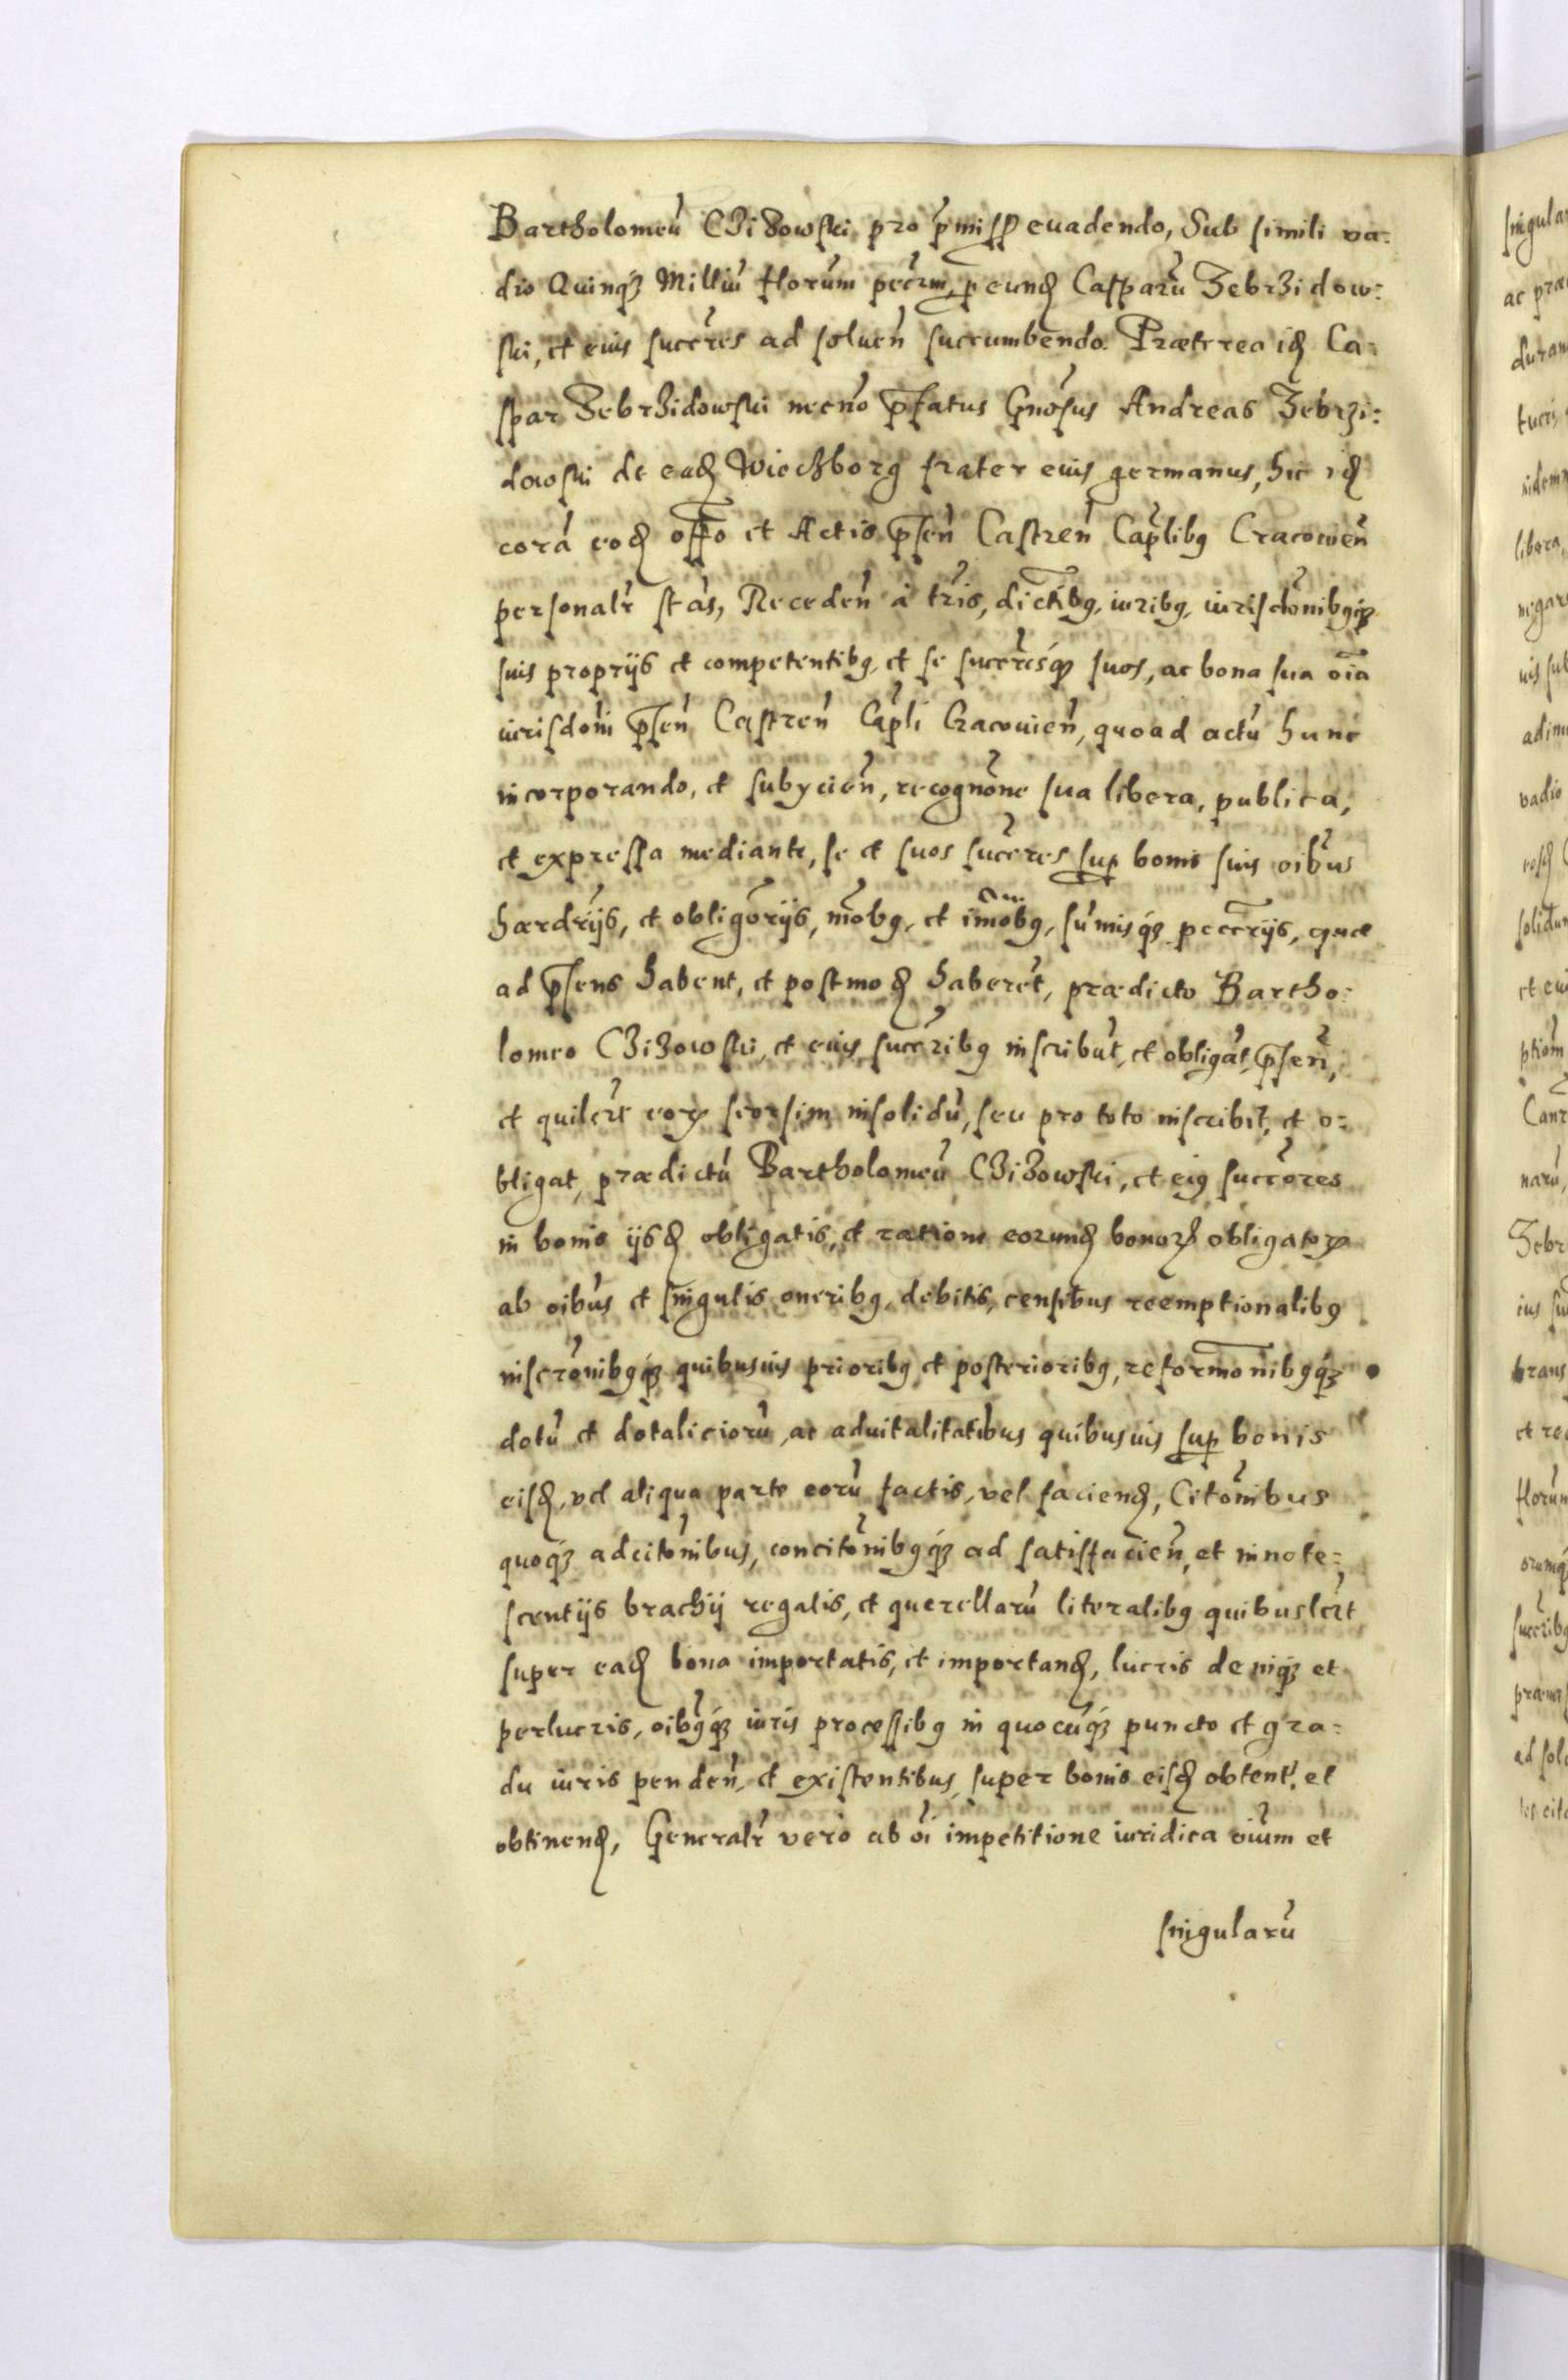 Bartholomeū Czizowski pro p̄miss evadendo, Sub simili va:
dio Quinq₃ Milliū florūm pecūm, p eund Casparū Zebrzidow:
ski, et eius succr̄es ad soluen̄ succumbendo. Præterea id Ca:
spar Zebrzidowski necno p̄fatus Gnōsus Andreas Zebrzi:
dowski de ead Wieczborg frater eius germanus, hic id
corā eod offo et Actis p̄sen̄ Castren̄ Cap̄libꝯ Cracouien̄
personalr̄ stās, Receden̄ à tr̄is, dictībꝯ, iuribꝯ, iurisdōnibꝯq₃
suis proprijs et competentibꝯ, et se succr̄esq₃ suos, ac bona sua oīa
iurisdōni p̄sen̄ Castren̄ Cap̄li Cracouien̄, quoad actū hunc
incorporando, et subycien̄, recognōne sua libera, publica,
et expressa mediante, se et suos succr̄es sup bonis suis oibūs
hærdrījs, et obligōrijs, mōbꝯ, et imōbꝯ, sūmisq₃ peccr̄ijs, quæ
ad p̄sens habent, et postmod haberēt, prædicto Bartho:
lomeo Czizowski, et eius succr̄ibꝯ inscribūt, et obligāt, p̄sen̄,
et quilert eoꝝ seorsim insolidū, seu pro toto inscribit, et o:
bligat, prædictū Bartholomeū Czizowski, et eiꝯ succōres
in bonis ijsd obligatis, et ratione eorund bonoꝝ obligatoꝝ
ab oibūs et singulis oneribꝯ, debitis, censibus reemptionalibꝯ
inscrōnibꝯq₃ quibusuis prioribꝯ et posterioribꝯ, reformōnibꝯq₃
dotū et dotaliciorū, ac aduitalitatibus quibusuis sup bonis
eisd, vel aliqua parte eorū factis, vel faciend, Citōnibus
quoq₃ adcitōnibus, concitōnibꝯq₃ ad satisfacien̄, et innote:
scentijs brachij regalis, et querellarū literalibꝯ quibuslert
super ead bona importatis, et importand, lucris deniq₃ et
perlucris, oibꝯq₃ iuris processibꝯ in quocūq₃ puncto et gra:
du iuris penden̄, et existentibus, super bonis eisd obtent, et
obtinend, Generalr̄ vero ab oī impetitione iuridica oīum et
singularū